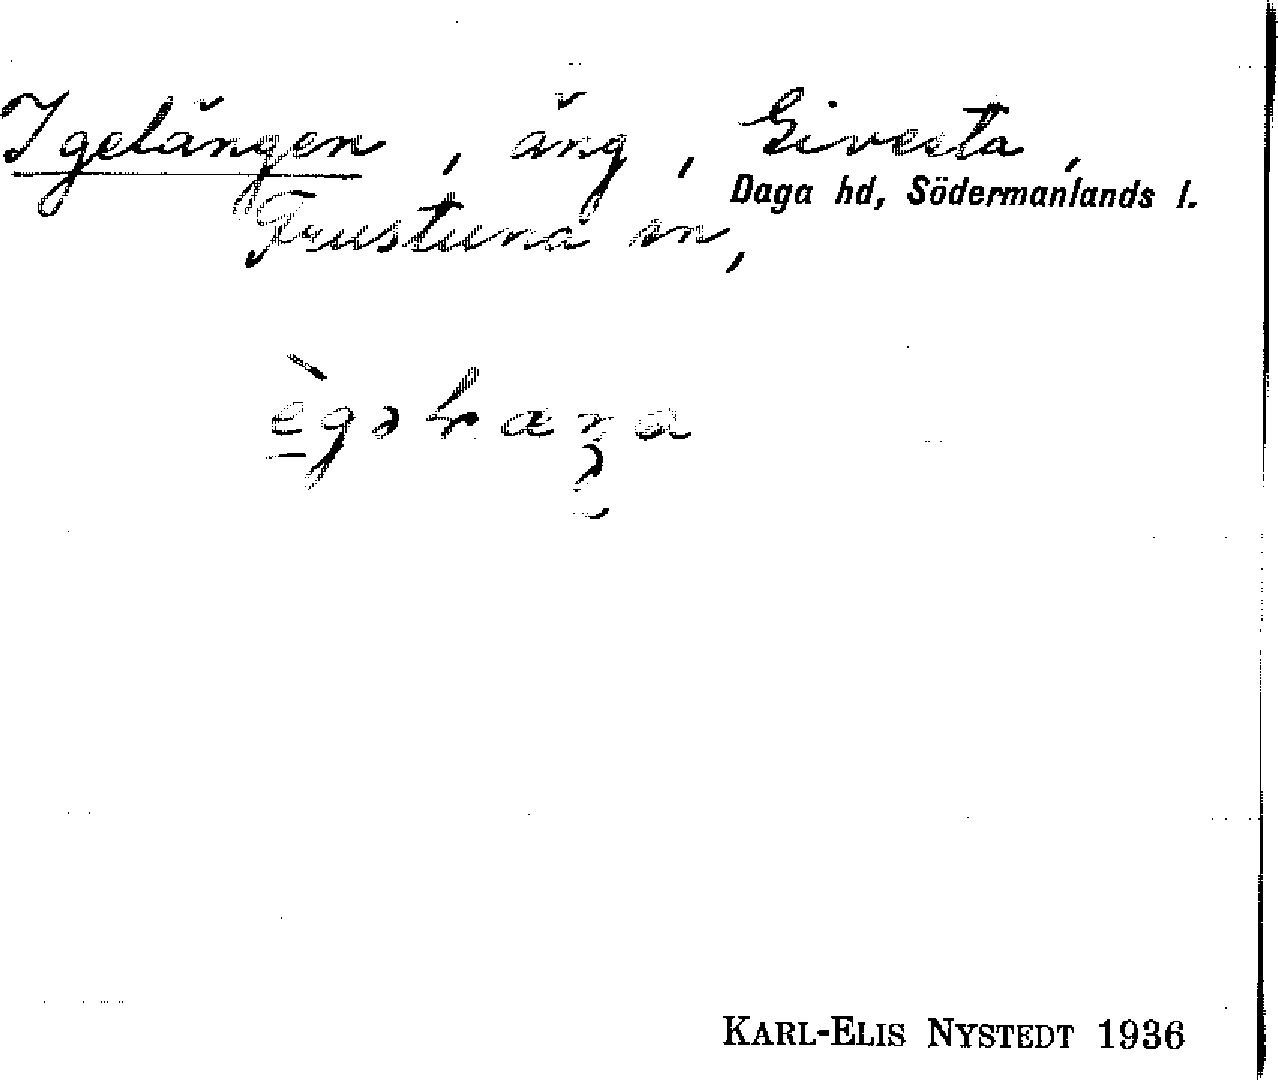 Igelängen, äng, Eivesta,
Daga hd, Södermanlands l.
Frustuna sn,
KARL-ELIS NYSTEDT 1936